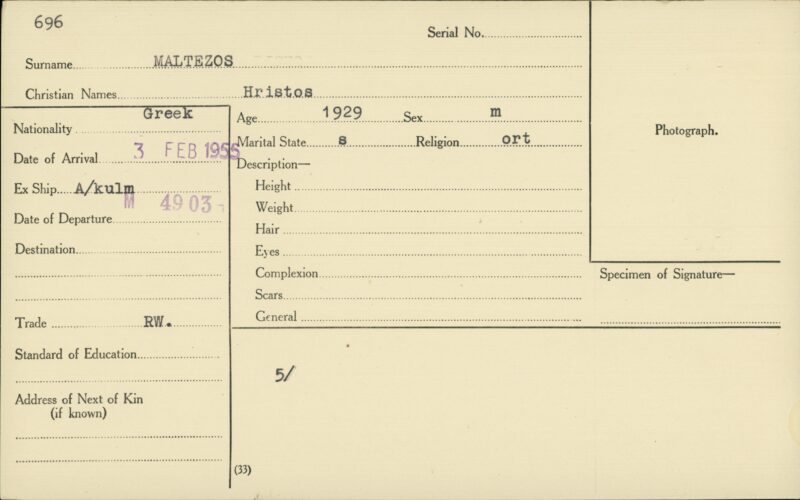 696
Serial No.
Surname MALTEZOS
Christian Names Hristos
Nationality Greek
Date of Arrival 3 FEB 1955
Ex Ship A/kulm
M 4903
Date of Departure
Destination
Trade RW.
Standard of Education
Address of Next of Kin
(if known)
Age 1929 Sex m
Marital State s Religion ort
Description—
Height
Weight
Hair
Eyes
Complexion
Scars
General
Photograph.
Specimen of Signature—
5/
(33)